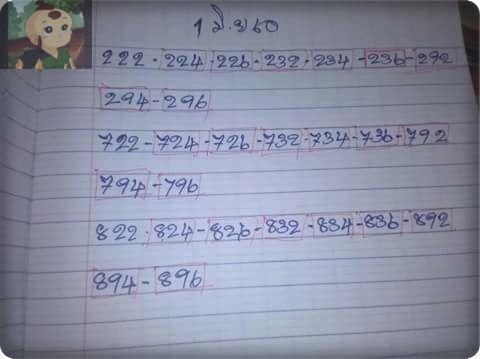 1 มิ.ย60
222 - 224 - 226 - 232 - 234 - 236 - 292
294 - 296
722 - 724 - 726 - 732 - 734 - 736 - 792
794 - 796
822 - 824 - 826 - 832 - 834 - 836 - 892
894 - 896